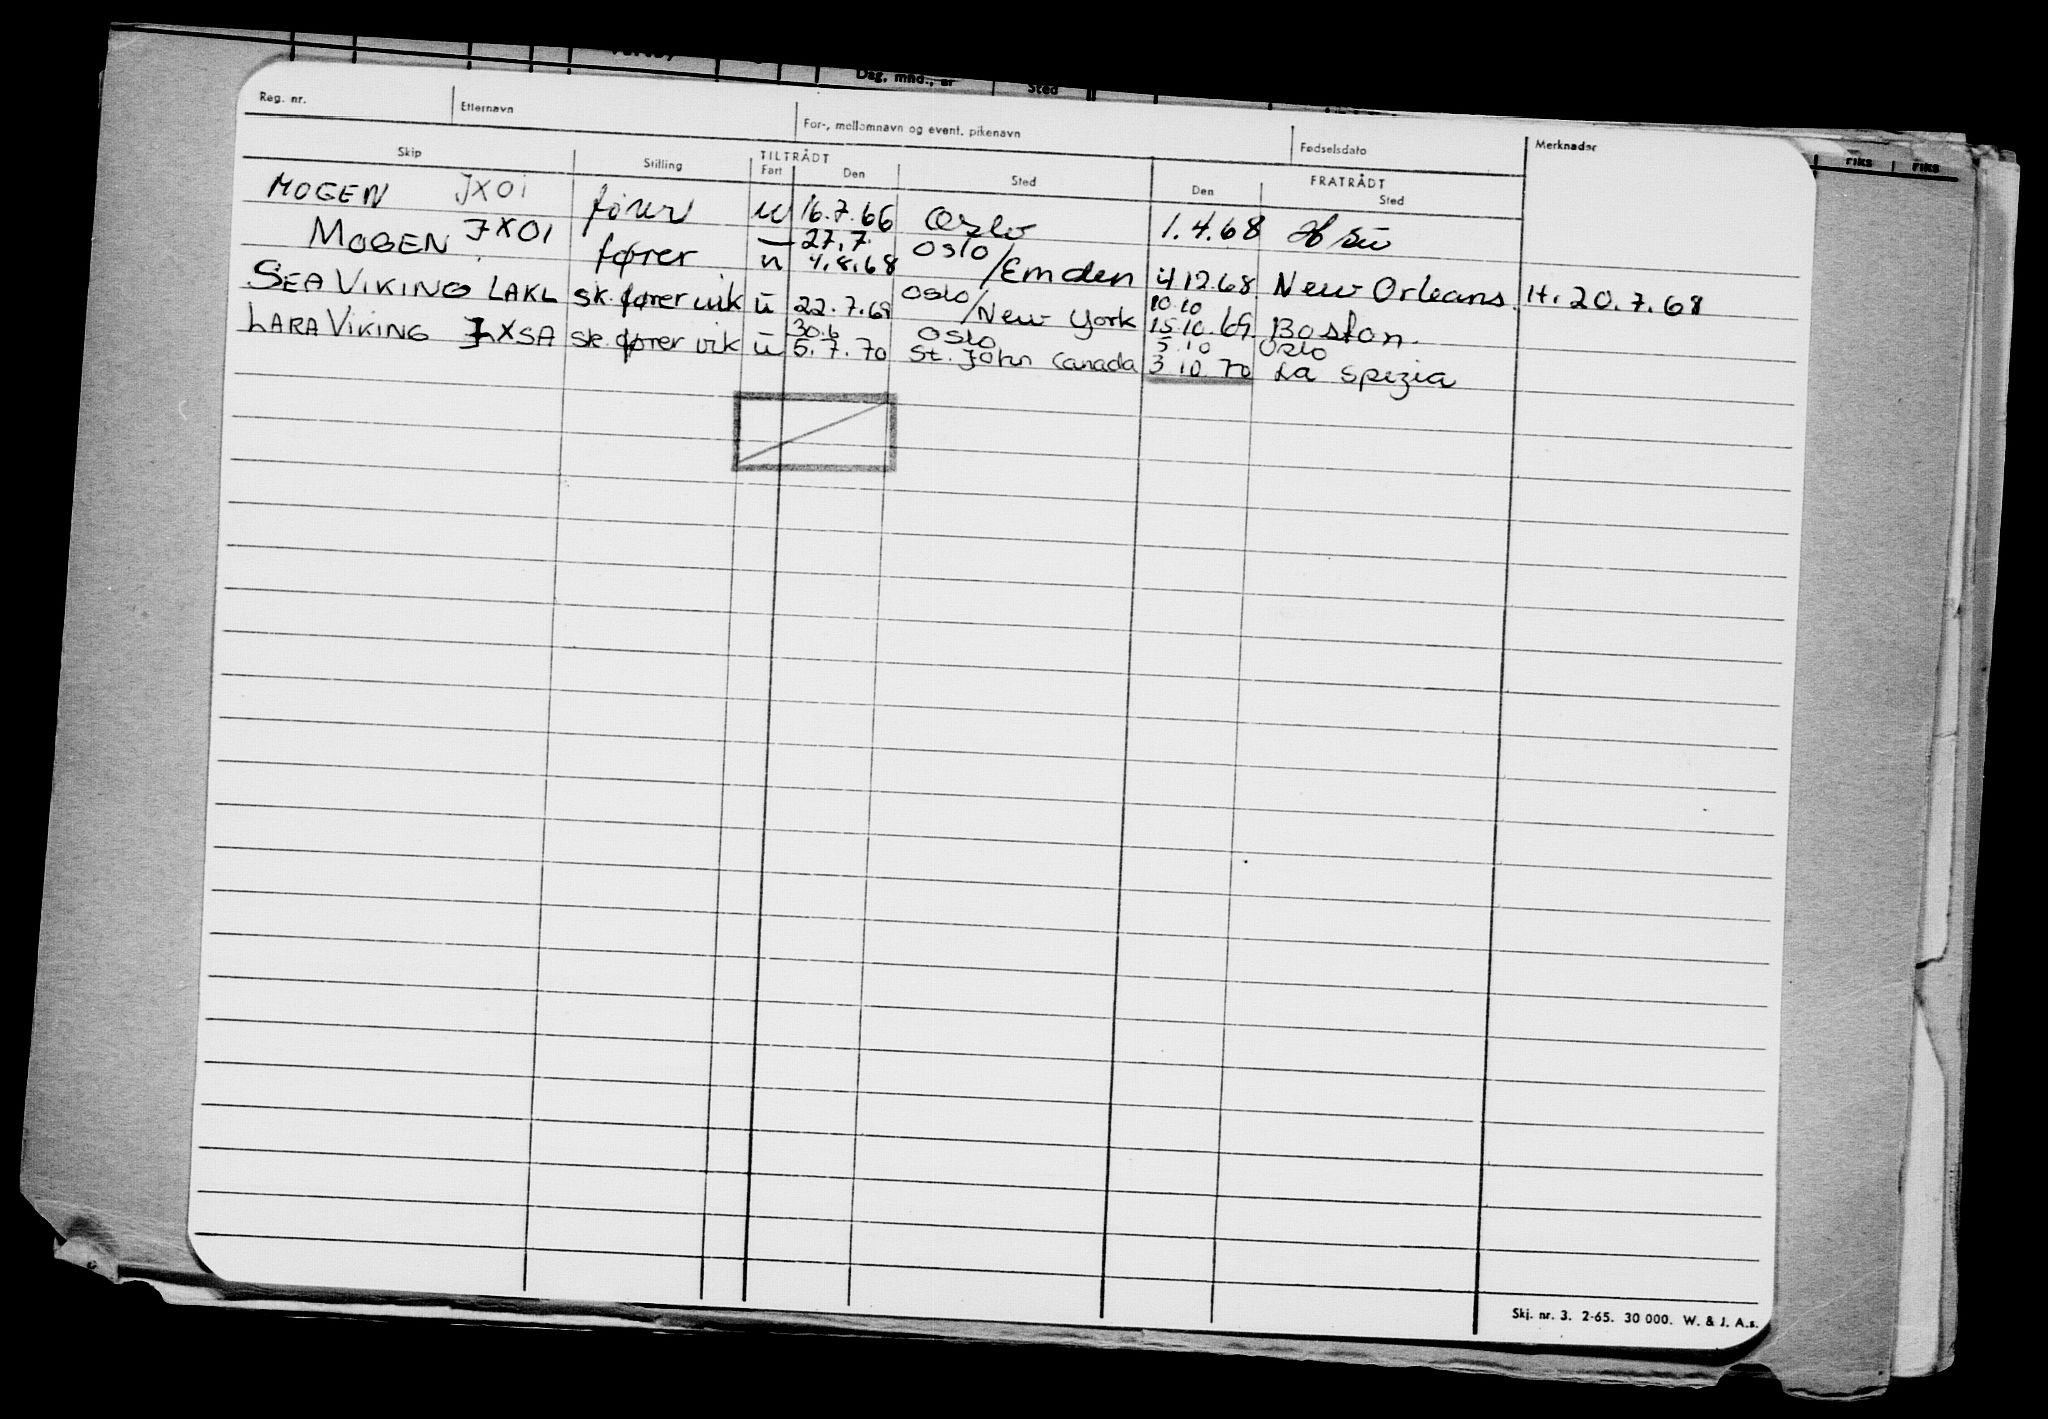 Dag, mnd., år Sted
Reg. nr. Etternavn For-, mellomnavn og event. pikenavn Fødselsdato Merknader
Skip Stilling TILTRÅDT Fart Den Sted FRATRÅDT Den Sted
MOGEN JXOI fører u 16.7.66 Oslo 1.4.68
MOGEN JXOI fører u 27.7. 4.8.68 Oslo/Emden 4 12.68 New Orleans. H. 20.7.68
SEA VIKING LAKL sk. fører vik u 22.7.69 Oslo/New York 10.10 15 10.69 Boston.
LARA VIKING LXSA sk. fører vik u 30.6 5.7.70 Oslo St. John Canada 5.10 3 10 70 Oslo La Spezia
riks riks
Skj. nr. 3. 2-65. 30 000. W. & J. A.s.